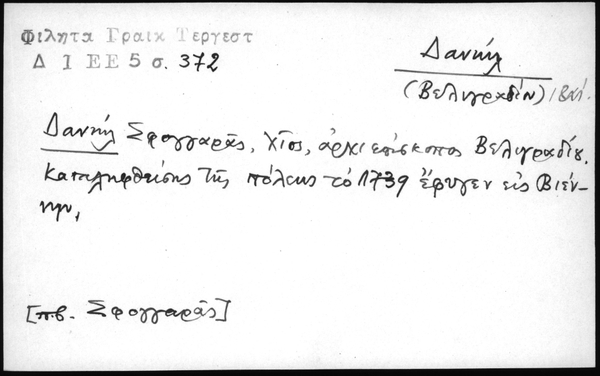 Φιλητα Γραικ Τεργεστ
Δ 1 ΕΕ 5 σ. 372
Δανιήλ
(Βελιγραδίου)
Δανιήλ Σφογγαρᾶς, Χῖος, ἀρχιεπίσκοπος Βελιγραδίου.
Καταληφθείσης τῆς πόλεως τὸ 1739 ἔφυγεν εἰς Βιέν-
νην.
[π.β. Σφογγαρᾶς]